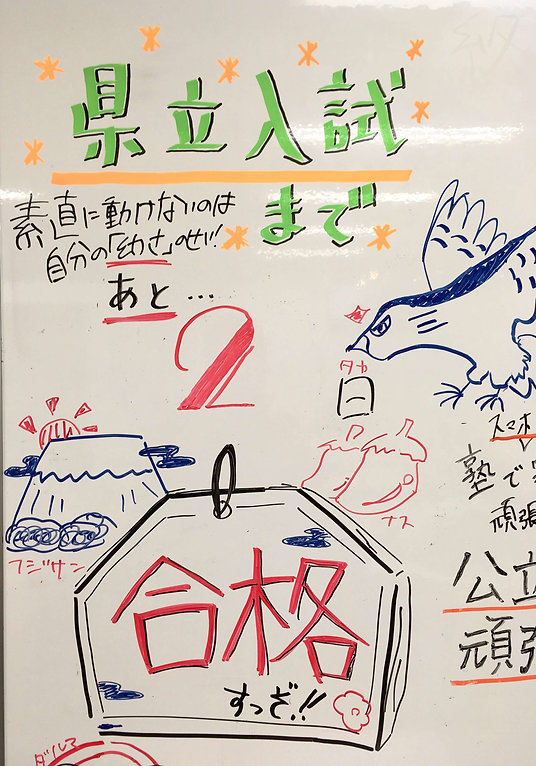 県立入試
まで
素直に動けないのは
自分の「幼さ」のせい!!
あと…
2
日
タカ
ナス
フジサン
合格
すっぞ!!
ダルマ
スマホ
塾で
頑張
公立
頑張